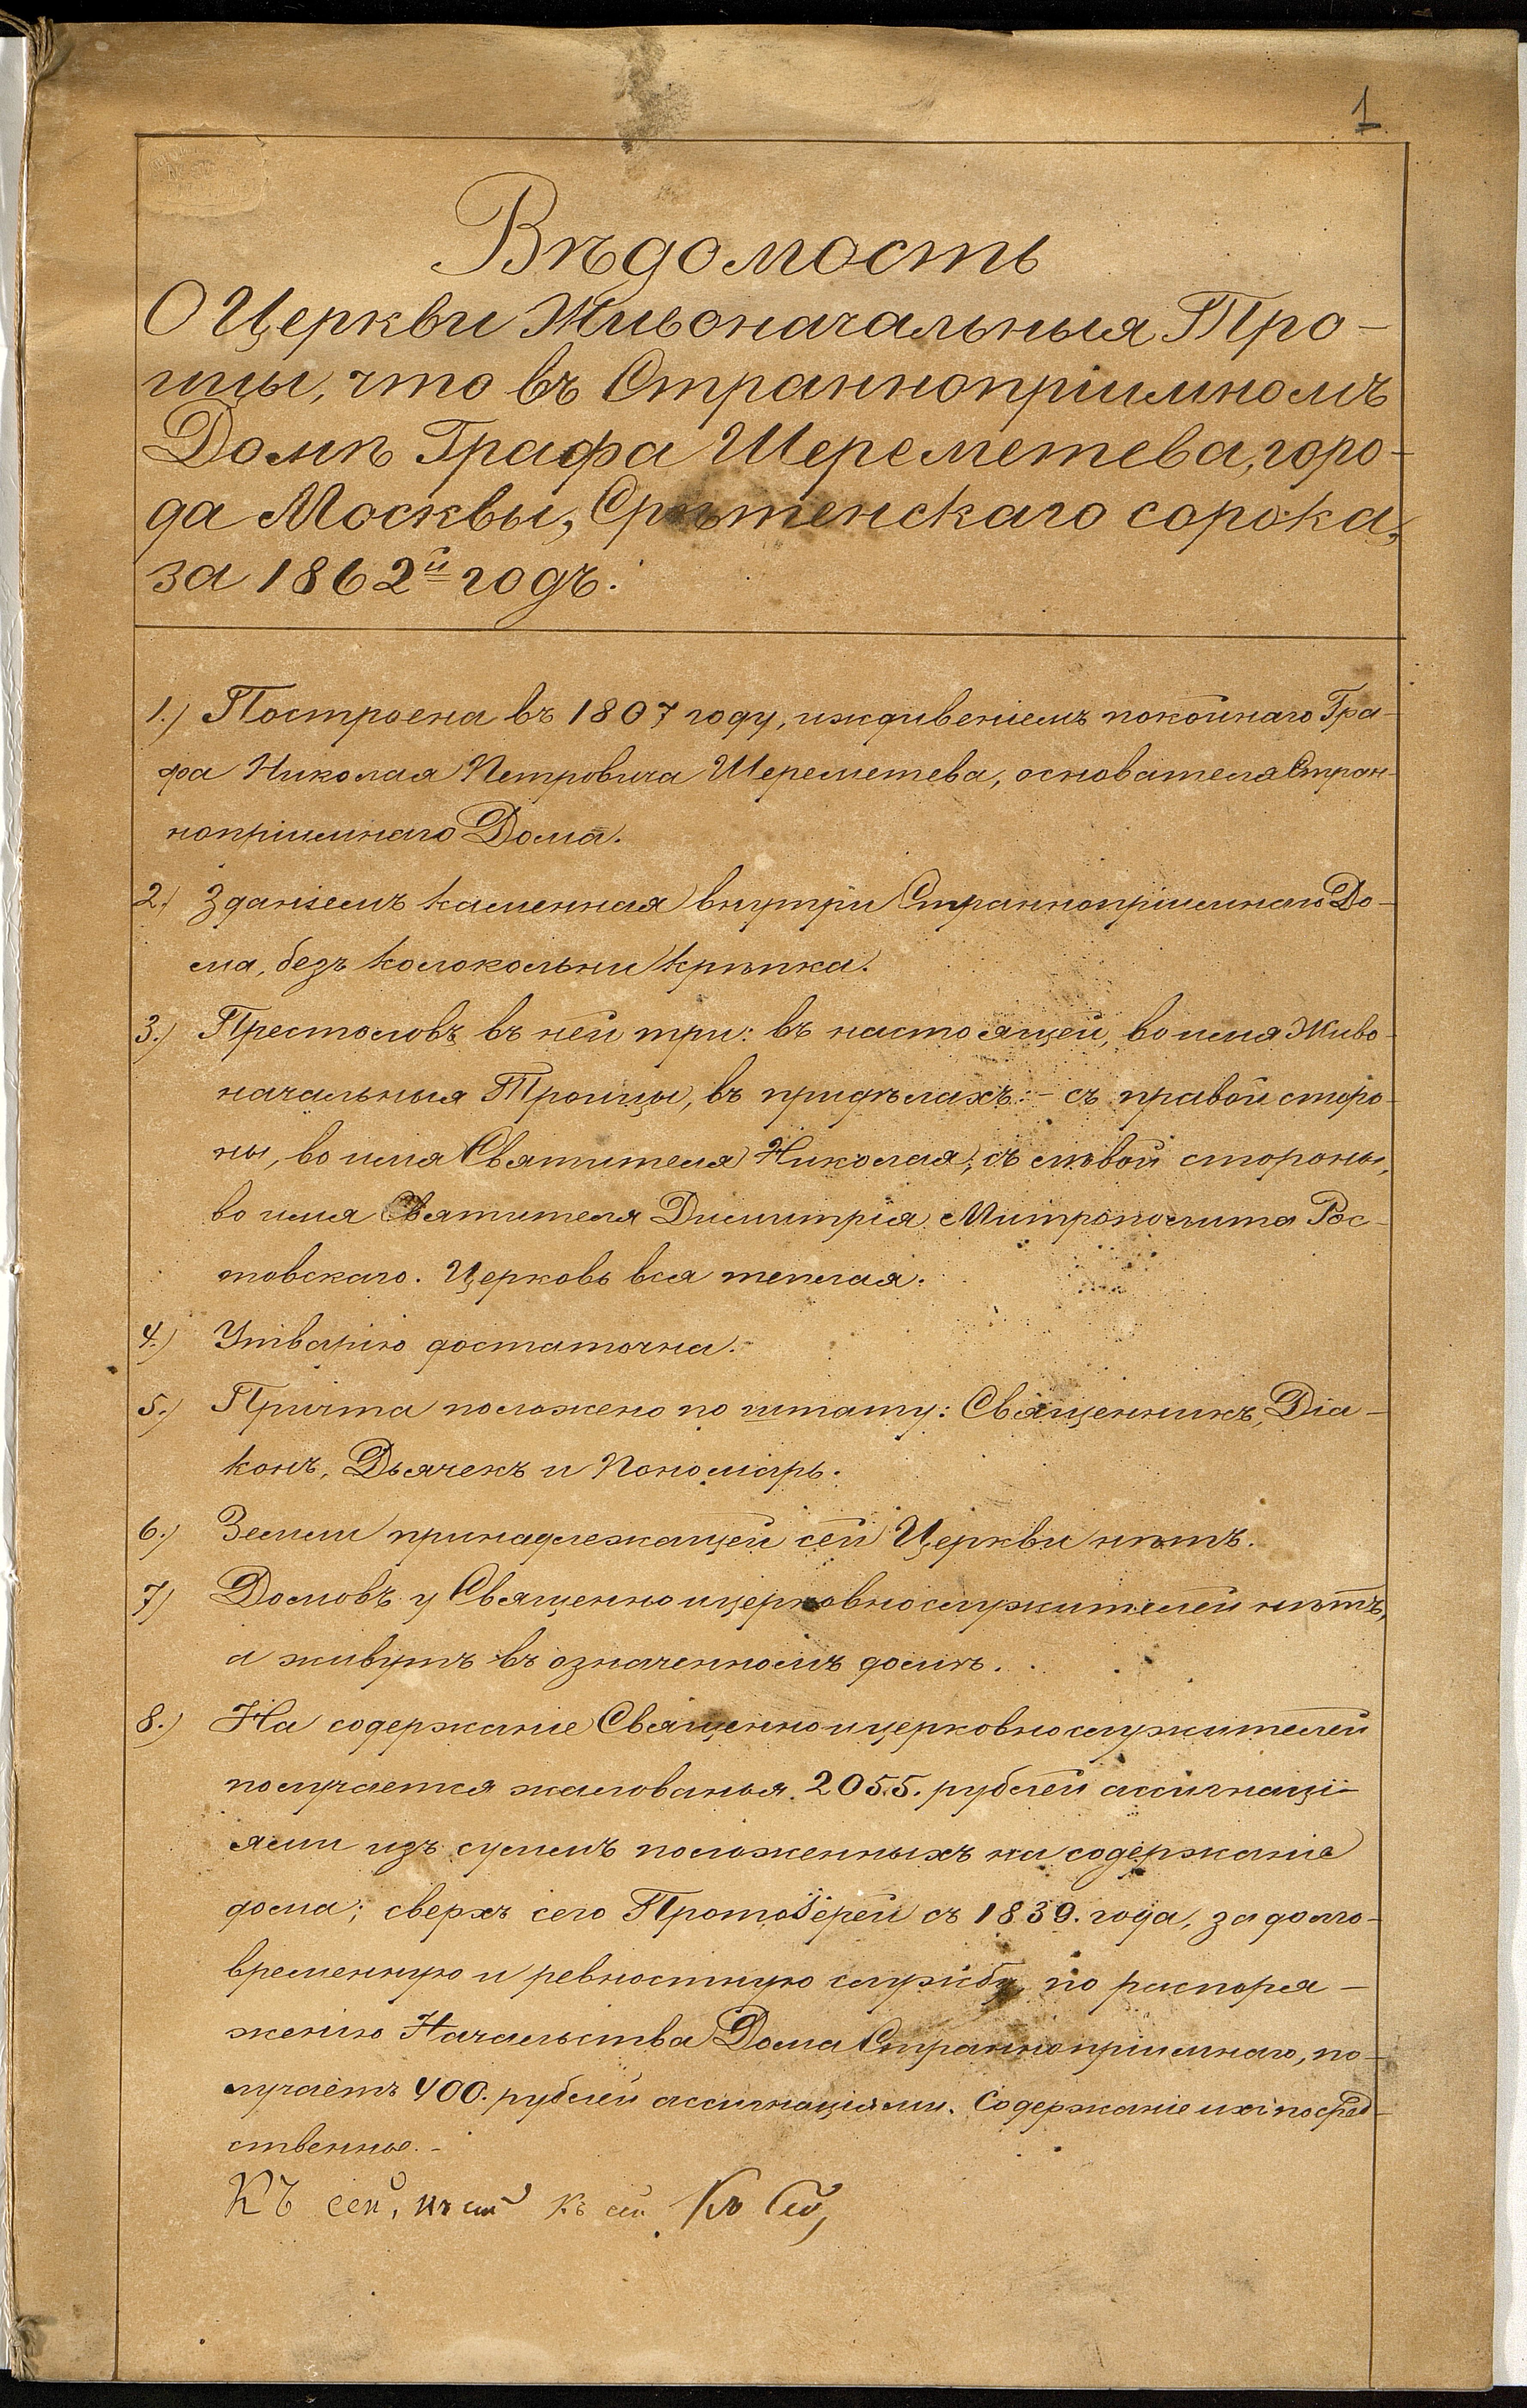 1
Вѣдомость
О Церкви Живоначальныя Тро-
ицы, что въ Страннопріимномъ
Домѣ Графа Шереметева, горо-
да Москвы, Срѣтенскаго сорока,
за 1862й годъ.
1.) Построена въ 1807 году, иждивеніемъ покойнаго Гра-
фа Николая Петровича Шереметева, основателя Стран-
нопріимнаго Дома.
2.) Зданіемъ каменная внутри Страннопріимнаго До-
ма, безъ колокольни крѣпка.
3.) Престоловъ въ ней три: въ настоящей, во имя Живо-
начальныя Троицы, въ придѣлахъ: - съ правой сторо-
ны, во имя Святителя Николая; съ лѣвой стороны,
во имя Святителя Димитрія Митрополита Рос-
товскаго. Церковь вся теплая.
4.) Утварію достаточна.
5.) Причта положено по штату: Священникъ, Діа-
конъ, Дьячекъ и Пономарь.
6.) Земли принадлежащей сей Церкви нѣтъ.
7) Домовъ у Священноицерковнослужителей нѣтъ,
а живутъ въ означенномъ домѣ.
8.) На содержаніе Священноицерковнослужителей
получается жалованья 2055. рублей ассигнаці-
ями изъ суммъ положенныхъ на содержаніе
дома; сверхъ сего Протоіерей съ 1839. года, за долго-
временную и ревностную службу, по распоря-
женію Начальства Дома Страннопріимнаго, по-
лучаетъ 400. рублей ассигнаціями. Содержаніе ихъ посред-
ственное.-
Къ сей, къ сей къ сей Къ сей,